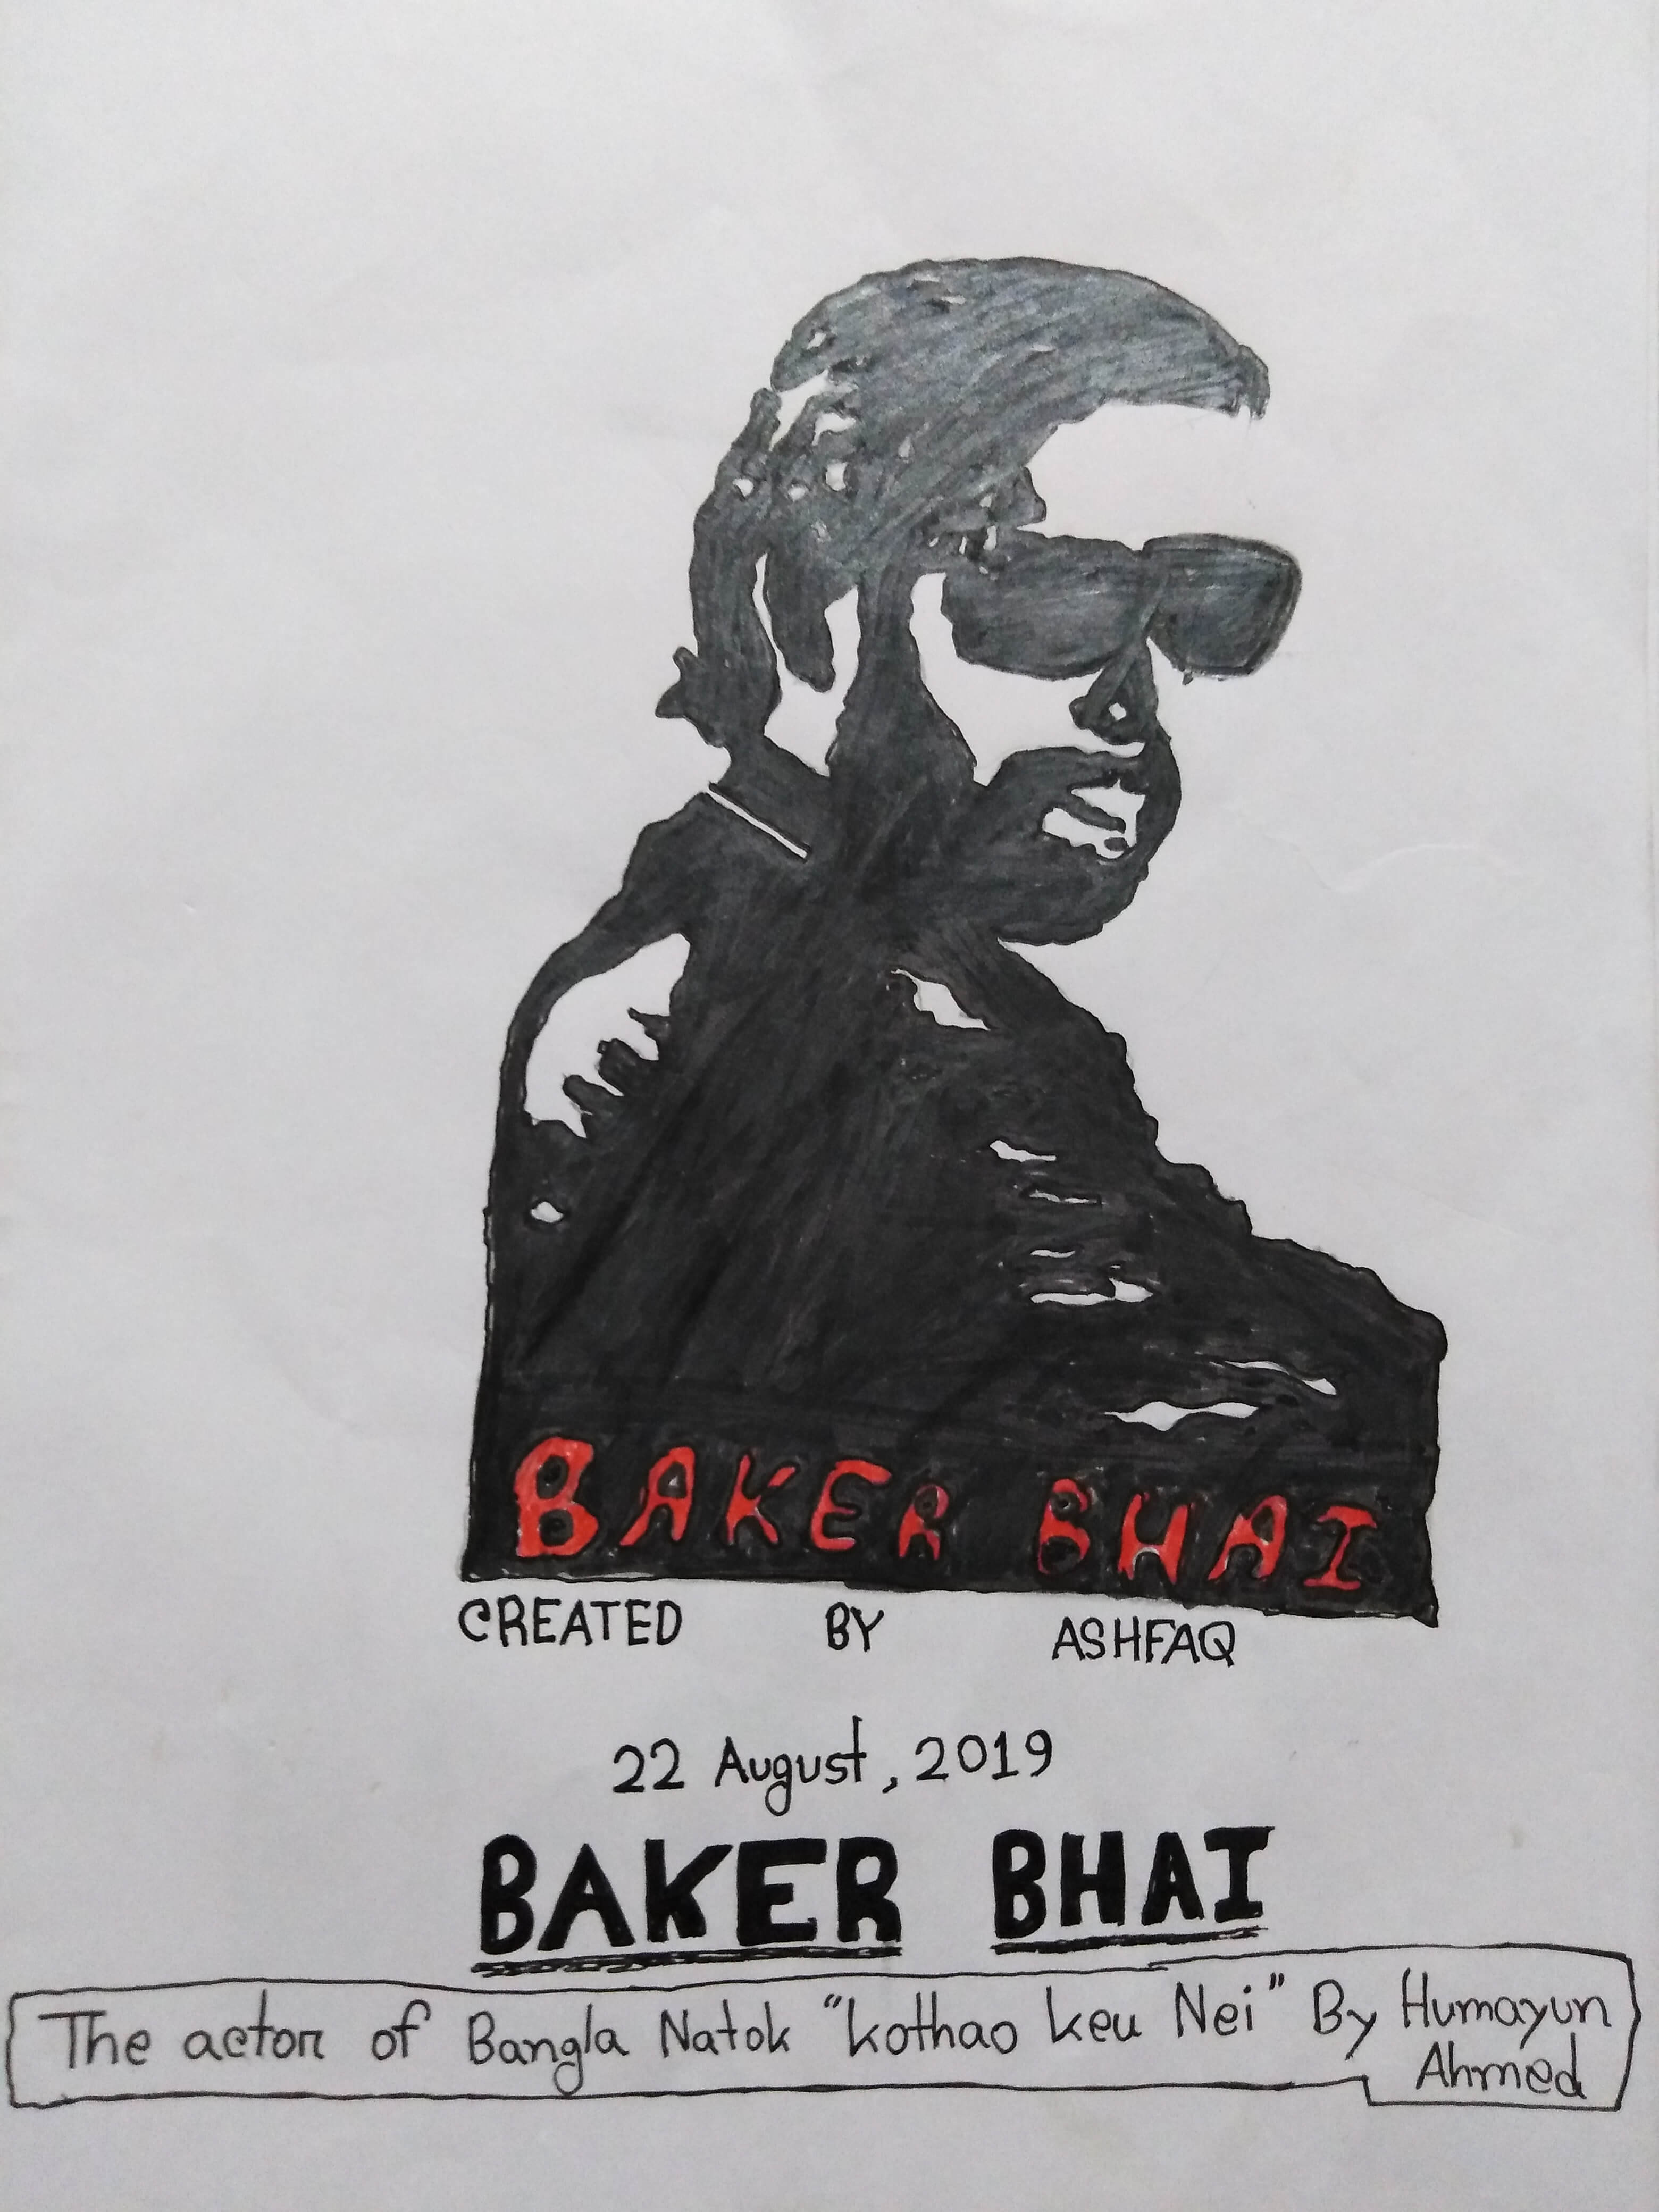 BAKER BHAI
CREATED BY ASHFAQ
22 August, 2019
BAKER BHAI
The actor of Bangla Natok "kothao keu Nei" By Humayun
Ahmed